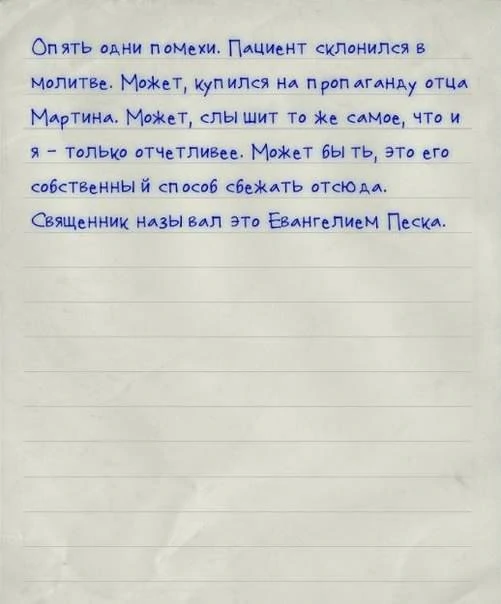 Опять одни помехи. Пациент склонился в
молитве. Может, купился на пропаганду отца
Мартина. Может, слышит то же самое, что и
я - только отчетливее. Может быть, это его
собственный способ сбежать отсюда.
Священник называл это Евангелием Песка.